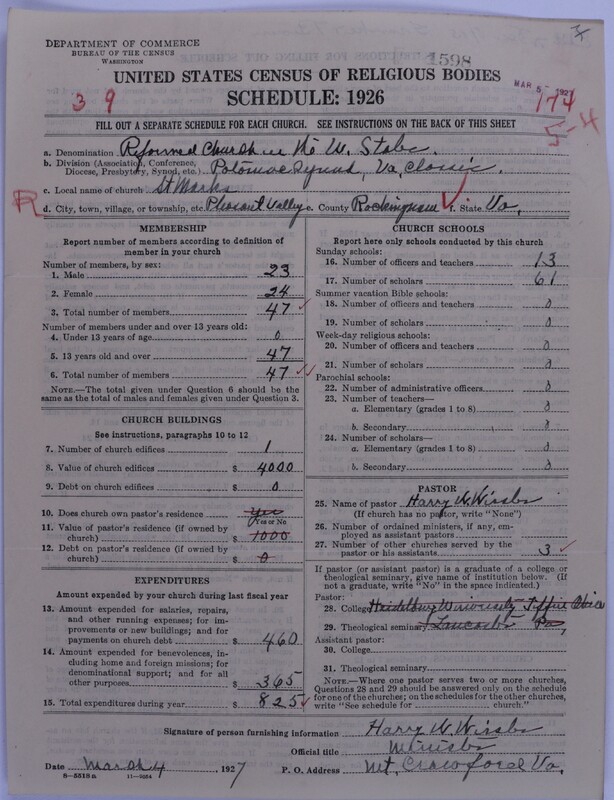 DEPARTMENT OF COMMERCE
BUREAU OF THE CENSUS
WASHINGTON
1598
UNITED STATES CENSUS OF RELIGIOUS BODIES
MAR 5 - 1927
3 9
SCHEDULE: 1926
174
FILL OUT A SEPARATE SCHEDULE FOR EACH CHURCH. SEE INSTRUCTIONS ON THE BACK OF THIS SHEET
5-4
a. Denomination Reformed Church in the U. States.
b. Division (Association, Conference,
Diocese, Presbytery, Synod, etc.) Potomac Synod, Va. Classis.
c. Local name of church St Marks
R d. City, town, village, or township, etc. Pleasant Valley e. County Rockingham f. State Va.
MEMBERSHIP
Report number of members according to definition of
member in your church
Number of members, by sex:
1. Male 23
2. Female 24
3. Total number of members 47
Number of members under and over 13 years old:
4. Under 13 years of age 0
5. 13 years old and over 47
6. Total number of members 47
NOTE.—The total given under Question 6 should be
same as the total of males and females given under Question 3.
CHURCH BUILDINGS
See instructions, paragraphs 10 to 12
7. Number of church edifices 1
8. Value of church edifices $ 4000
9. Debt on church edifices $ 0
10. Does church own pastor's residence Yes
Yes or No
11. Value of pastor's residence (if owned by
church) $ 1000
12. Debt on pastor's residence (if owned by
church) $ 0
EXPENDITURES
Amount expended by your church during last fiscal year
13. Amount expended for salaries, repairs,
and other running expenses; for im-
provements or new buildings; and for
payments on church debt $ 460
14. Amount expended for benevolences, in-
cluding home and foreign missions; for
denominational support; and for all
other purposes $ 365
15. Total expenditures during year $ 825
CHURCH SCHOOLS
Report here only schools conducted by this church
Sunday schools:
16. Number of officers and teachers 13
17. Number of scholars 61
Summer vacation Bible schools:
18. Number of officers and teachers 0
19. Number of scholars 0
Week-day religious schools:
20. Number of officers and teachers 0
21. Number of scholars 0
Parochial schools:
22. Number of administrative officers 0
23. Number of teachers—
a. Elementary (grades 1 to 8) 0
b. Secondary 0
24. Number of scholars—
a. Elementary (grades 1 to 8) 0
b. Secondary 0
PASTOR
25. Name of pastor Harry W.
(If church has no pastor, write "None")
26. Number of ordained ministers, if any, em-
ployed as assistant pastors
27. Number of other churches served by the
pastor or his assistants 3
If pastor (or assistant pastor) is a graduate of a college or
theological seminary, give name of institution below. (If
not a graduate, write "No" in the space indicated.)
Pastor:
28. College Heidelberg University Tiffin Ohio
29. Theological seminary Lancaster Pa.
Assistant pastor:
30. College
31. Theological seminary
NOTE.—Where one pastor serves two or more churches,
Questions 28 and 29 should be answered only on the schedule
for one of the churches; on the schedules for the other churches,
write "See schedule for church."
Signature of person furnishing information Harry W.
Official title Minister
Date March 4 1927 P. O. Address Mt. Crawford Va.
8—5518 a 11—9054